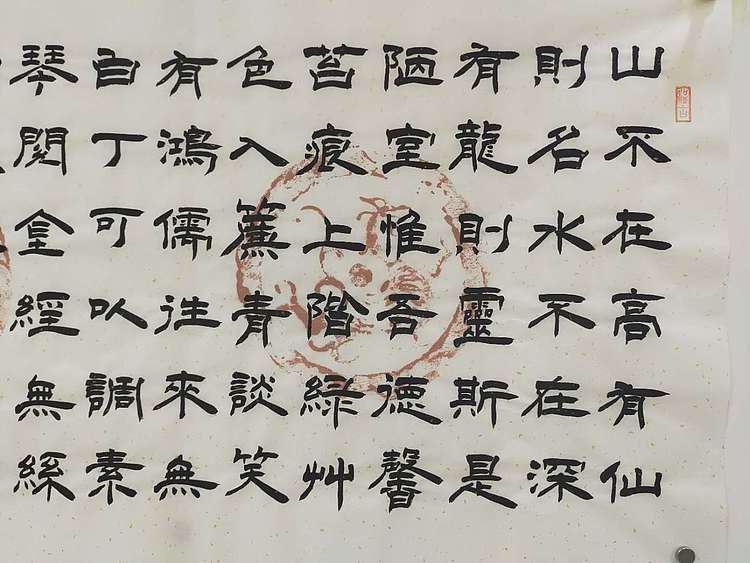 山不在高有仙
則名水不在深
有龍則靈斯是
陋室惟吾德馨
苔痕上階緑艸
色入簾青談笑
有鴻儒往來無
白丁可以調素
琴閱金經無絲